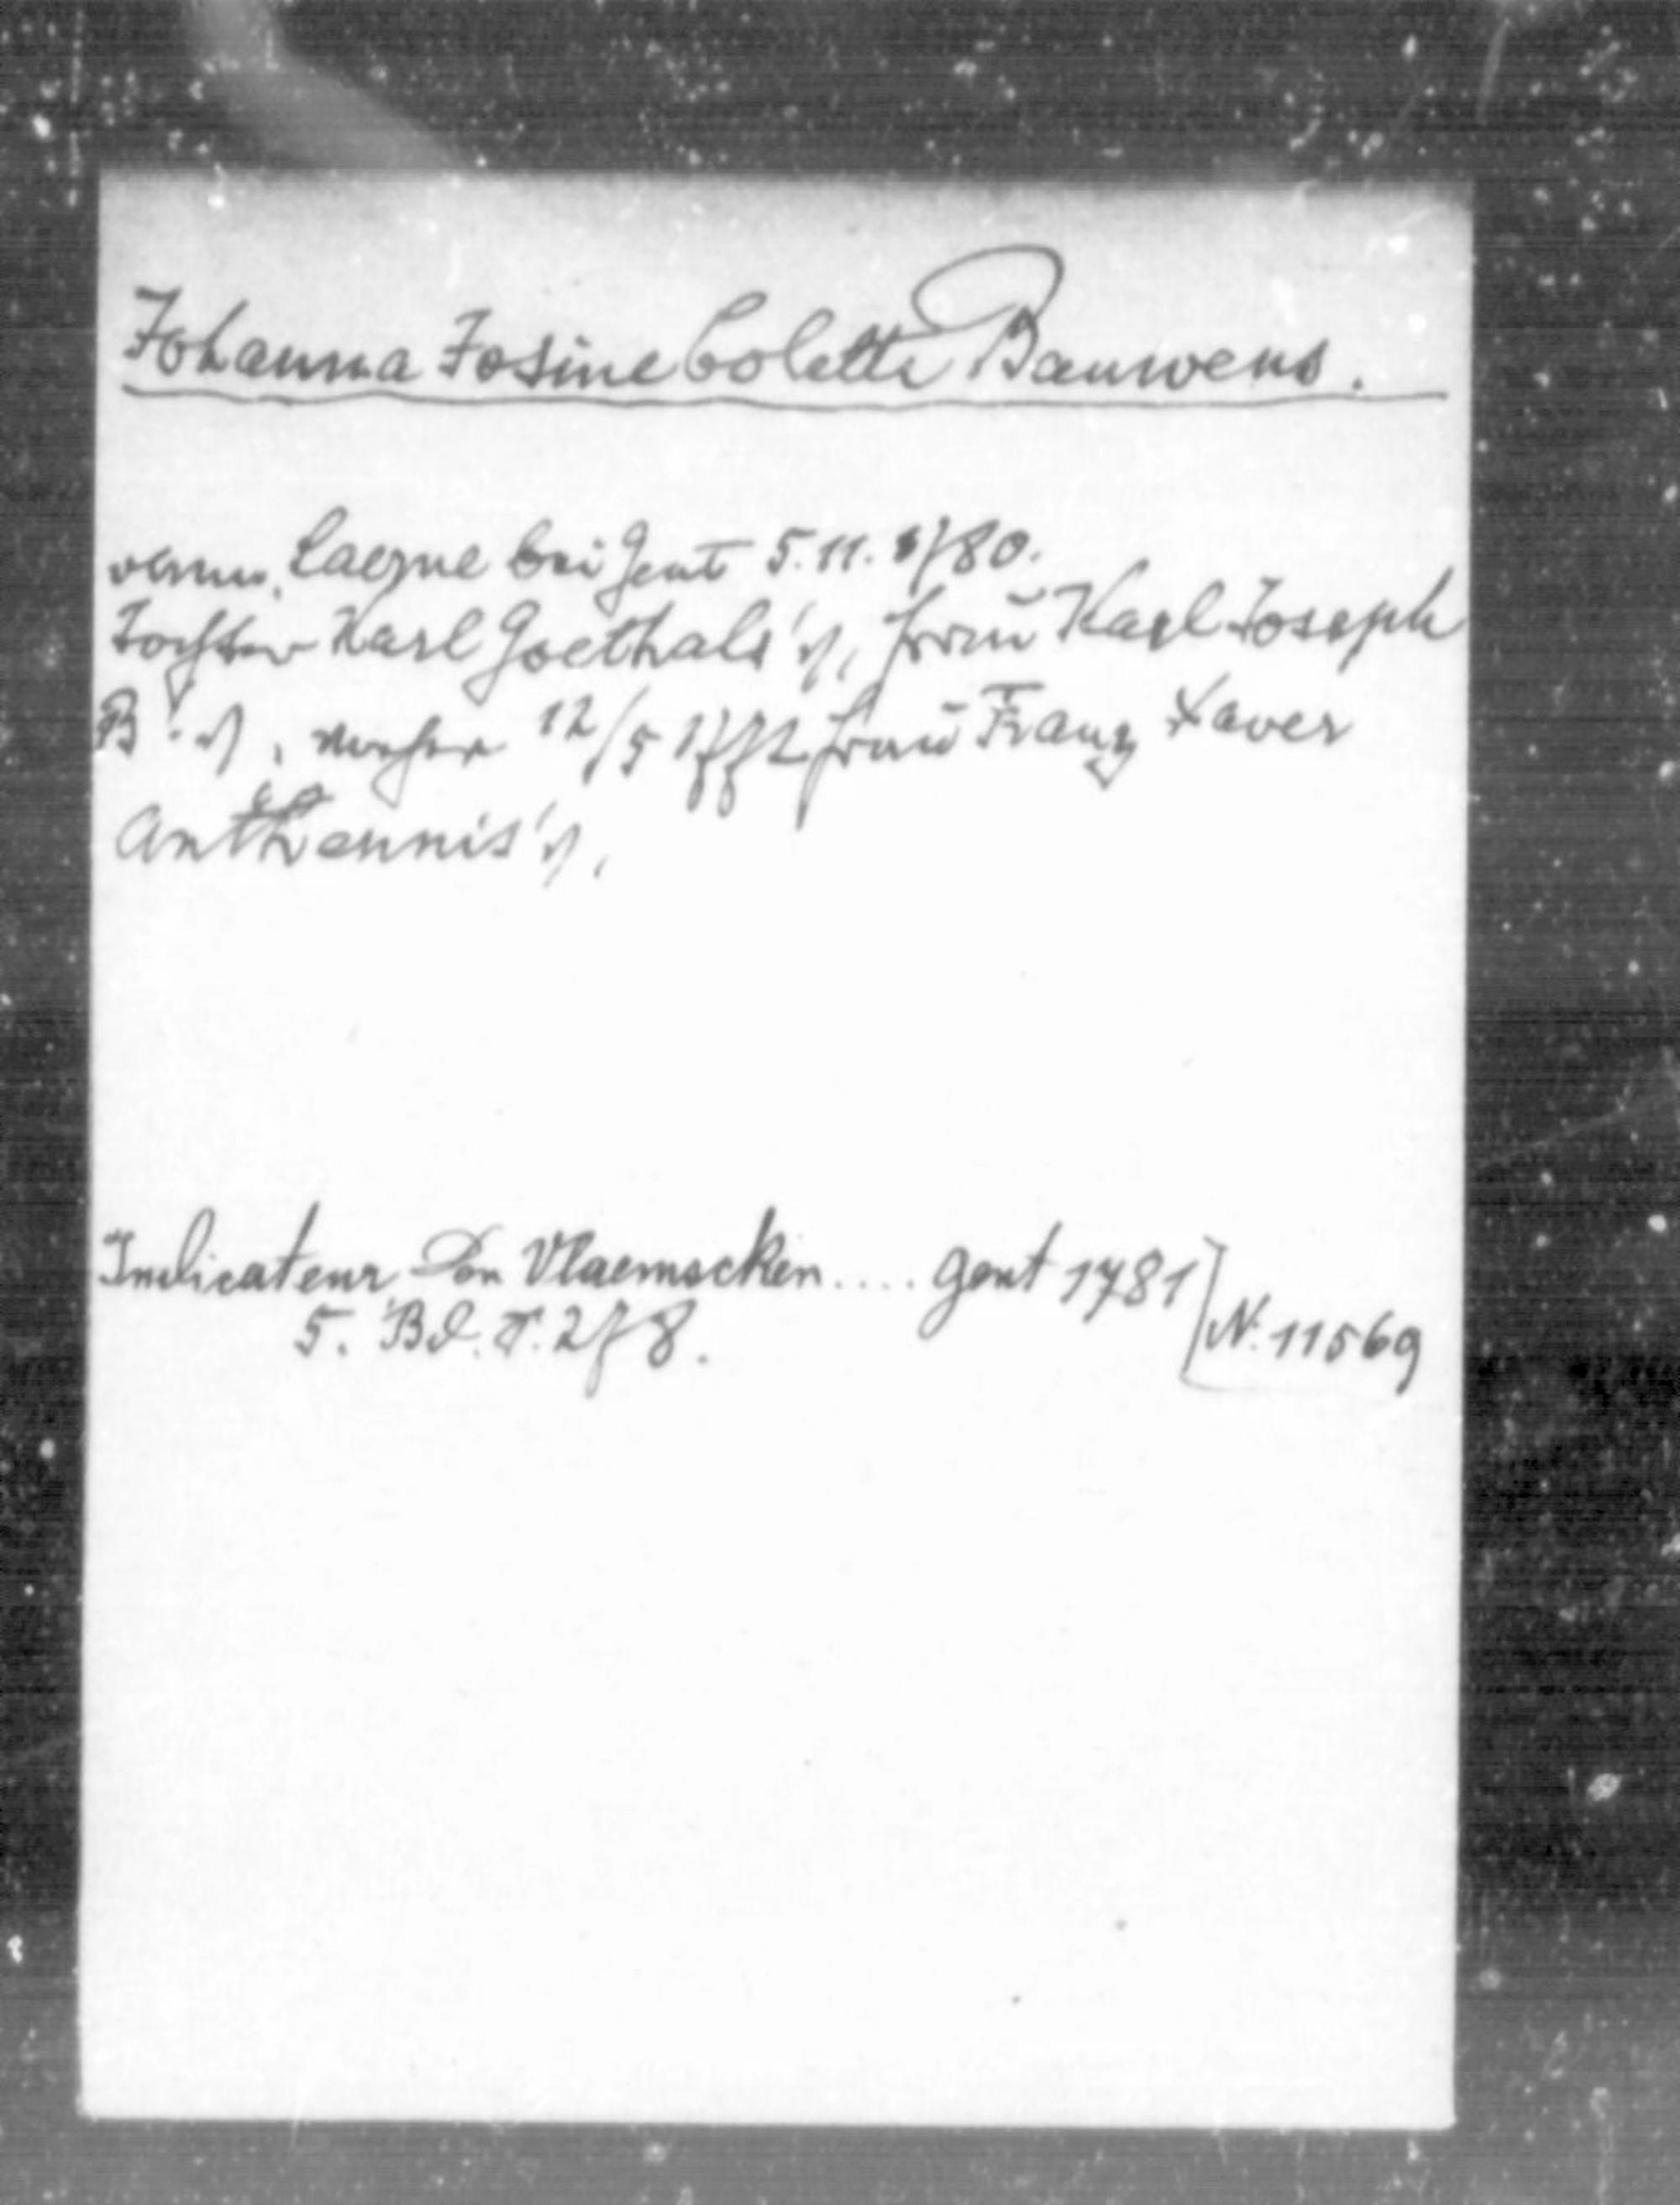 Johanna Josine Colette Bauwens.
verm. Laerne bei Gent 5.11.1780.
Tochter Karl Goethals's, Frau Karl Joseph
B's, vorher 12/5 1772 Frau Franz Xaver
Antheunis's,
Indicateur Den Vlaemscken .... Gent 1781
5. Bd. S. 278.
N. 11569